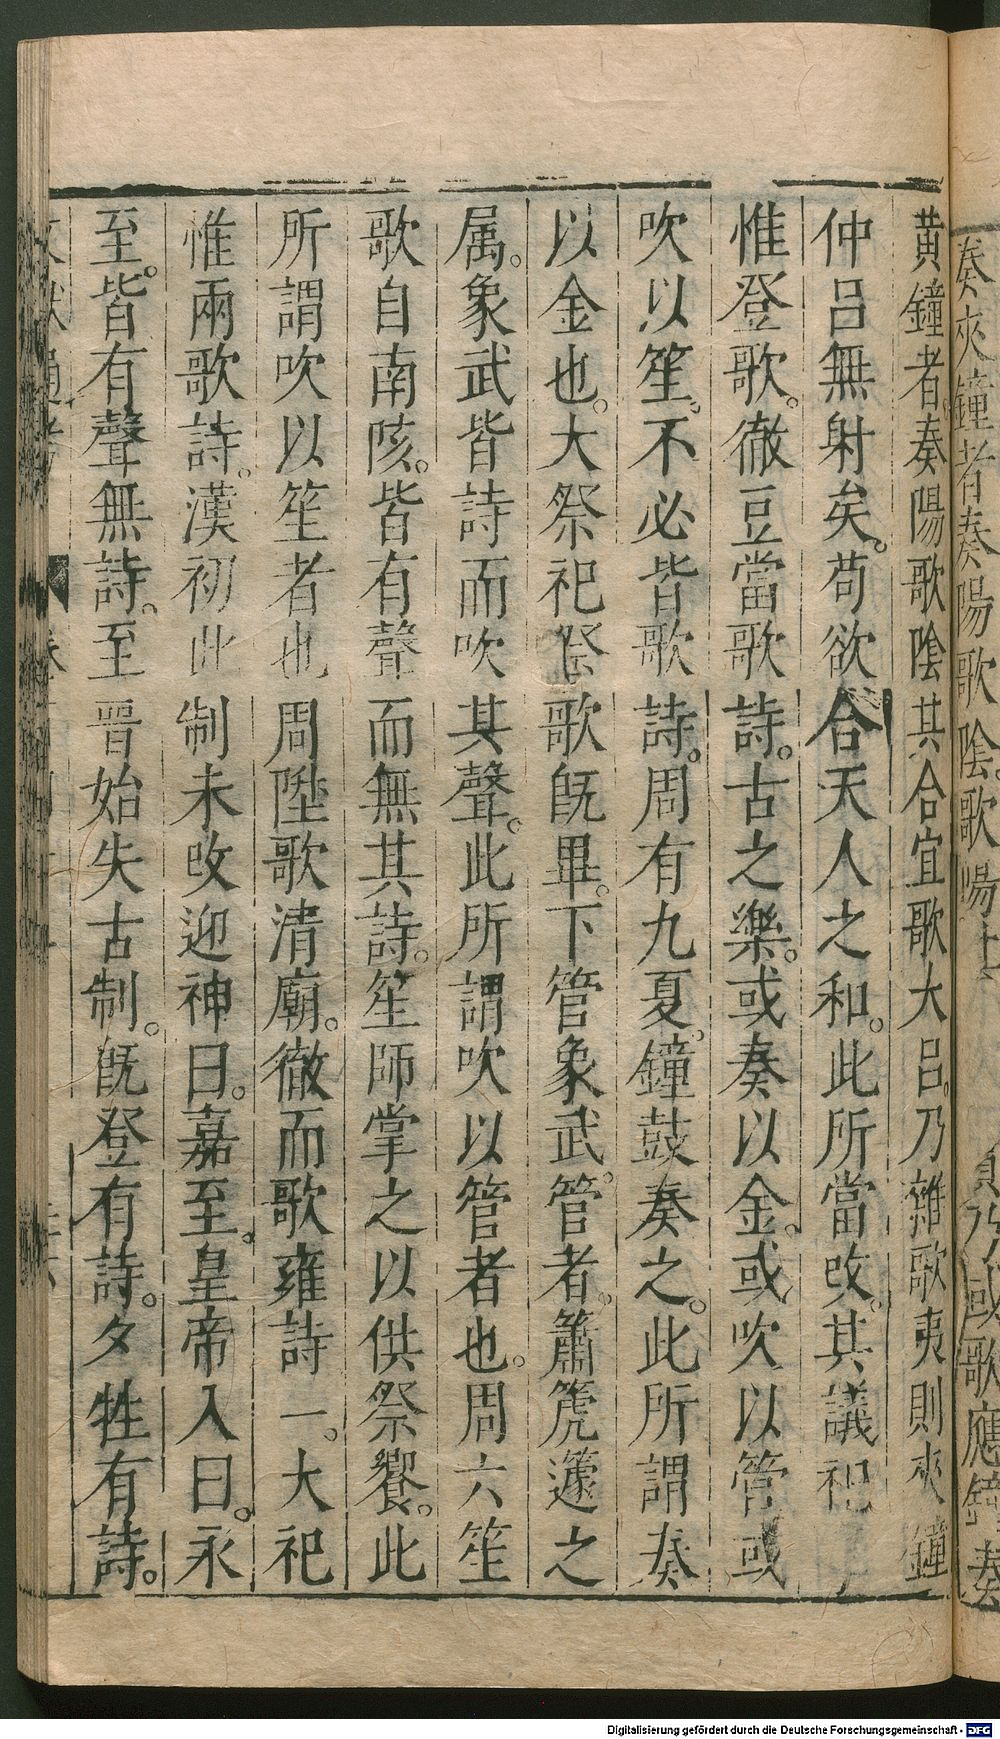 奏夾鐘者奏陽歌陰歌陽
乃或歌應鐘奏
黄鐘者奏陽歌陰其合宜歌大吕乃雜歌夷則夾鐘
仲吕無射矣苟欲合天人之和此所當改其議祀
惟登歌徹豆當歌詩古之樂或奏以金或吹以管或
吹以笙不必皆歌詩周有九夏鐘鼓奏之此所謂奏
以金也大祭祀登歌旣畢下管象武管者簫篪籧之
属象武皆詩而吹其聲此所謂吹以管者也周六笙
歌自南陔皆有聲而無其詩笙師掌之以供祭饗此
所謂吹以笙者也周陞歌清廟徹而歌雍詩一大祀
惟兩歌詩漢初此制未改迎神曰嘉至皇帝入曰永
至皆有聲無詩至晉始失古制旣登有詩夕牲有詩
Digitalisierung gefördert durch die Deutsche Forschungsgemeinschaft - DFG